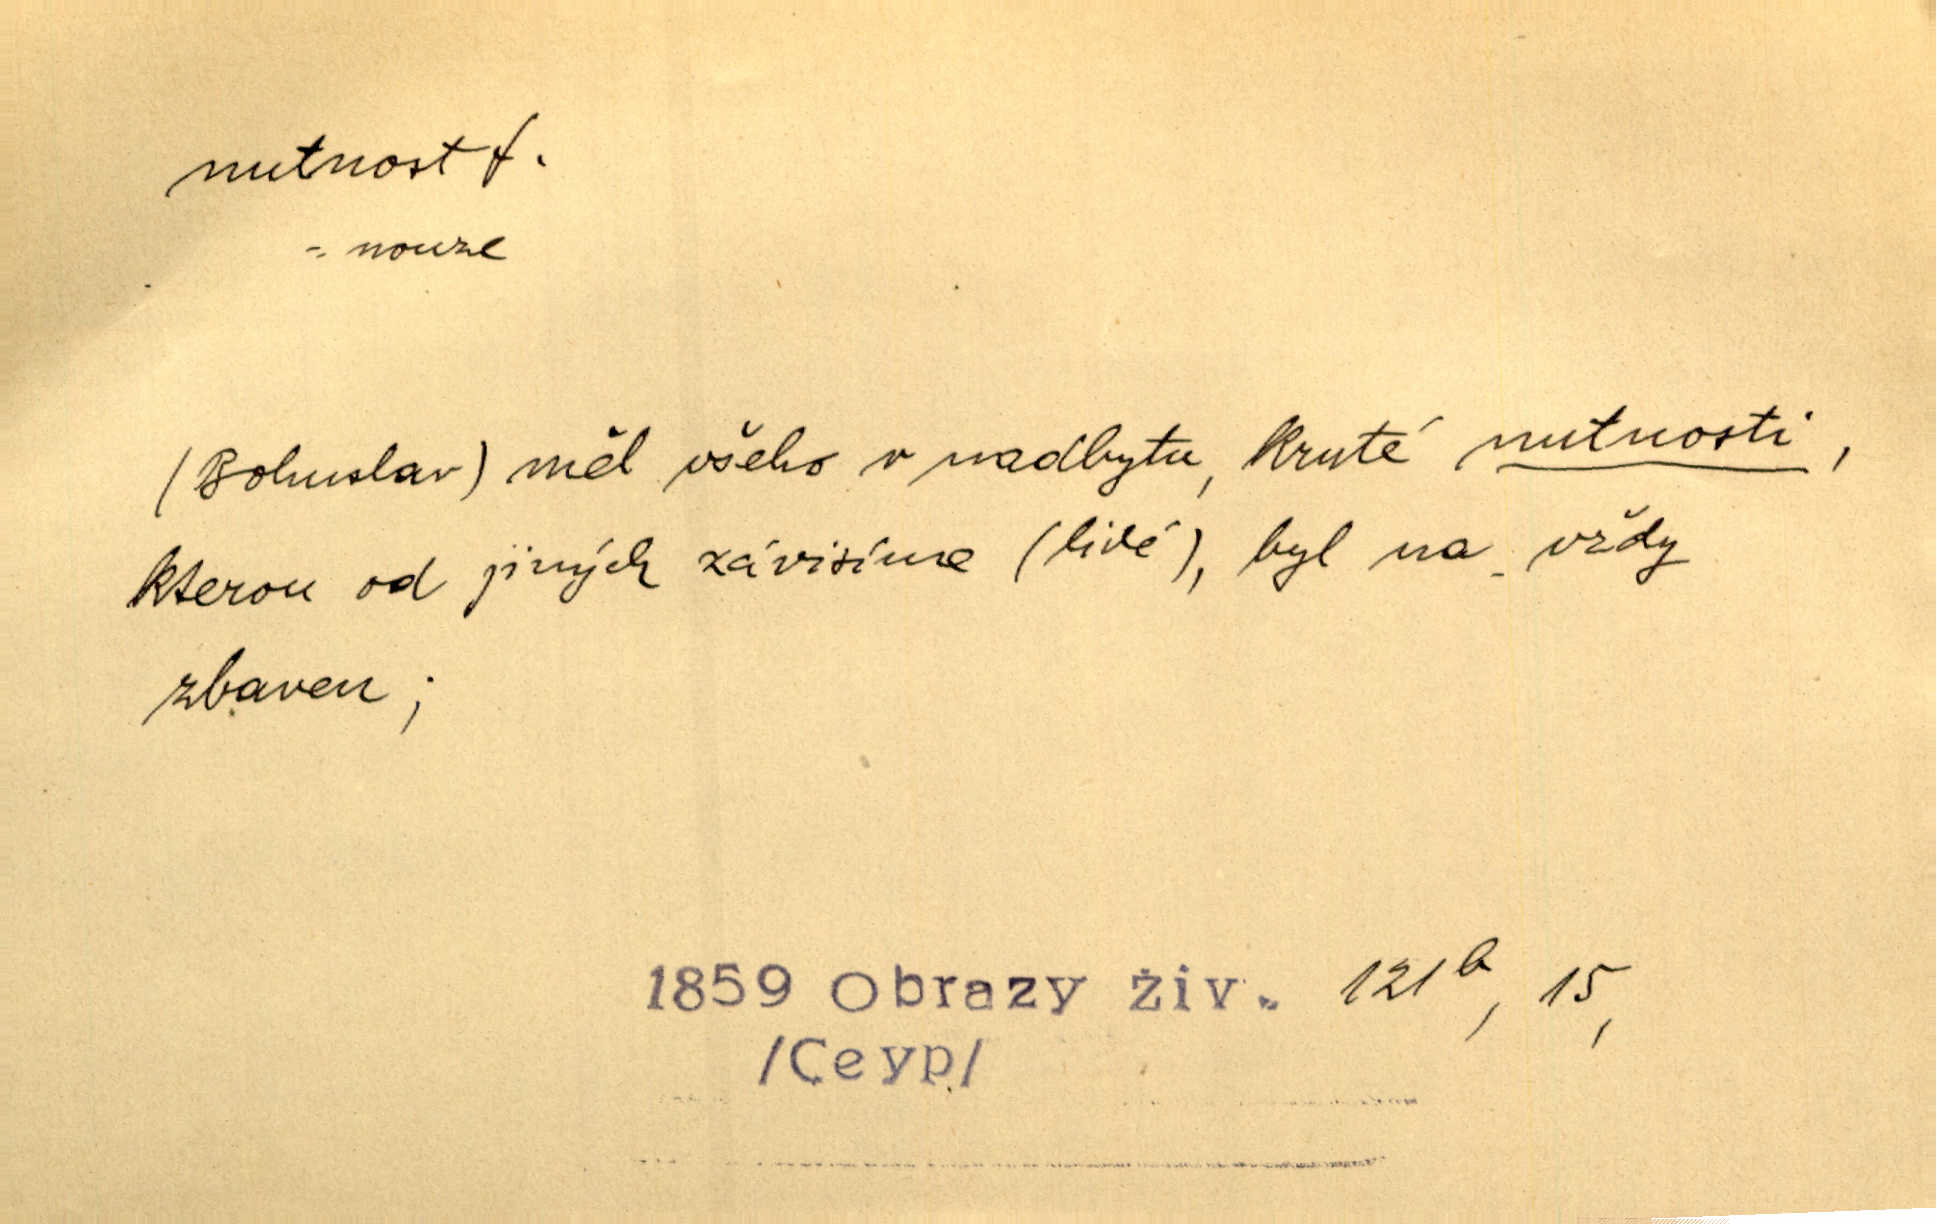 nutnost f.
= nouze
(Bohuslav) měl všeho v nadbytu, kruté nutnosti,
kterou od jiných závisíme (lidé), byl na vždy
zbaven;
1859 Obrazy živ. 121b, 15,
/Ceyp/